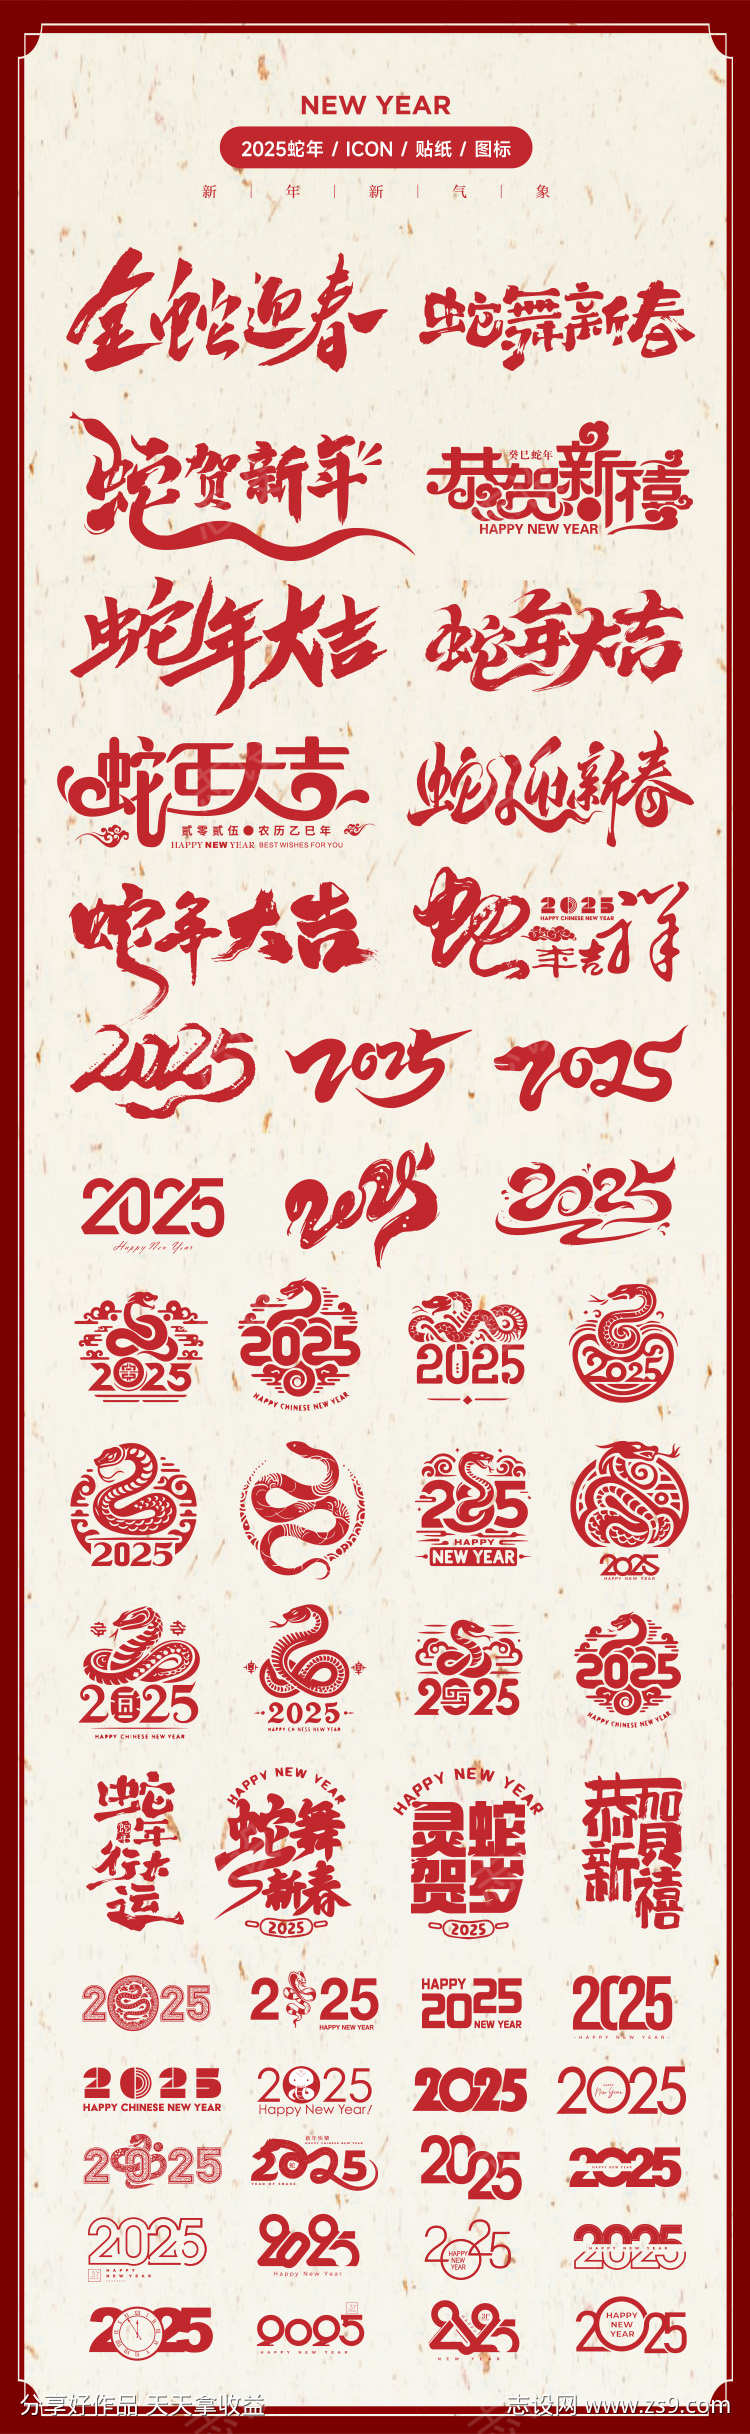 NEW YEAR
2025蛇年 / ICON / 贴纸 / 图标
新 | 年 | 新 | 气 | 象
金蛇迎春
蛇舞新春
蛇贺新年
癸巳蛇年
恭贺新禧
HAPPY NEW YEAR
蛇年大吉
蛇年大吉
蛇年大吉
贰零贰伍●农历乙巳年
HAPPY NEW YEAR BEST WISHES FOR YOU
蛇迎新春
蛇年大吉
蛇年吉祥
2025
HAPPY CHINESE NEW YEAR
2025
2025
2025
2025
Happy New Year
2025
2025
2025
2025
HAPPY CHINESE NEW YEAR
2025
2025
2025
2025
HAPPY
NEW YEAR
2025
HAPPY NEW YEAR
2025
HAPPY CHINESE NEW YEAR
2025
HAPPY CHINESE NEW YEAR
2025
2025
HAPPY CHINESE NEW YEAR
蛇年
行大
运
HAPPY NEW YEAR
蛇舞
新春
2025
HAPPY NEW YEAR
灵蛇
贺岁
2025
恭贺
新禧
2025
2025
HAPPY NEW YEAR
HAPPY
2025
NEW YEAR
2025
HAPPY NEW YEAR
2025
HAPPY CHINESE NEW YEAR
2025
Happy New Year!
2025
2025
New Year
2025
2025
YEAR OF SNAKE
2025
2025
HAPPY NEW YEAR
2025
HAPPY
NEW YEAR
2025
Happy New Year
2025
HAPPY
NEW
YEAR
2025
HAPPY NEW YEAR
2025
2025
HAPPY NEW YEAR
2025
NEW YEAR
2025
HAPPY
NEW
YEAR
分享好作品 天天拿收益
志设网 www.zs9.com